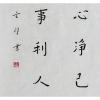 心净己
事利人